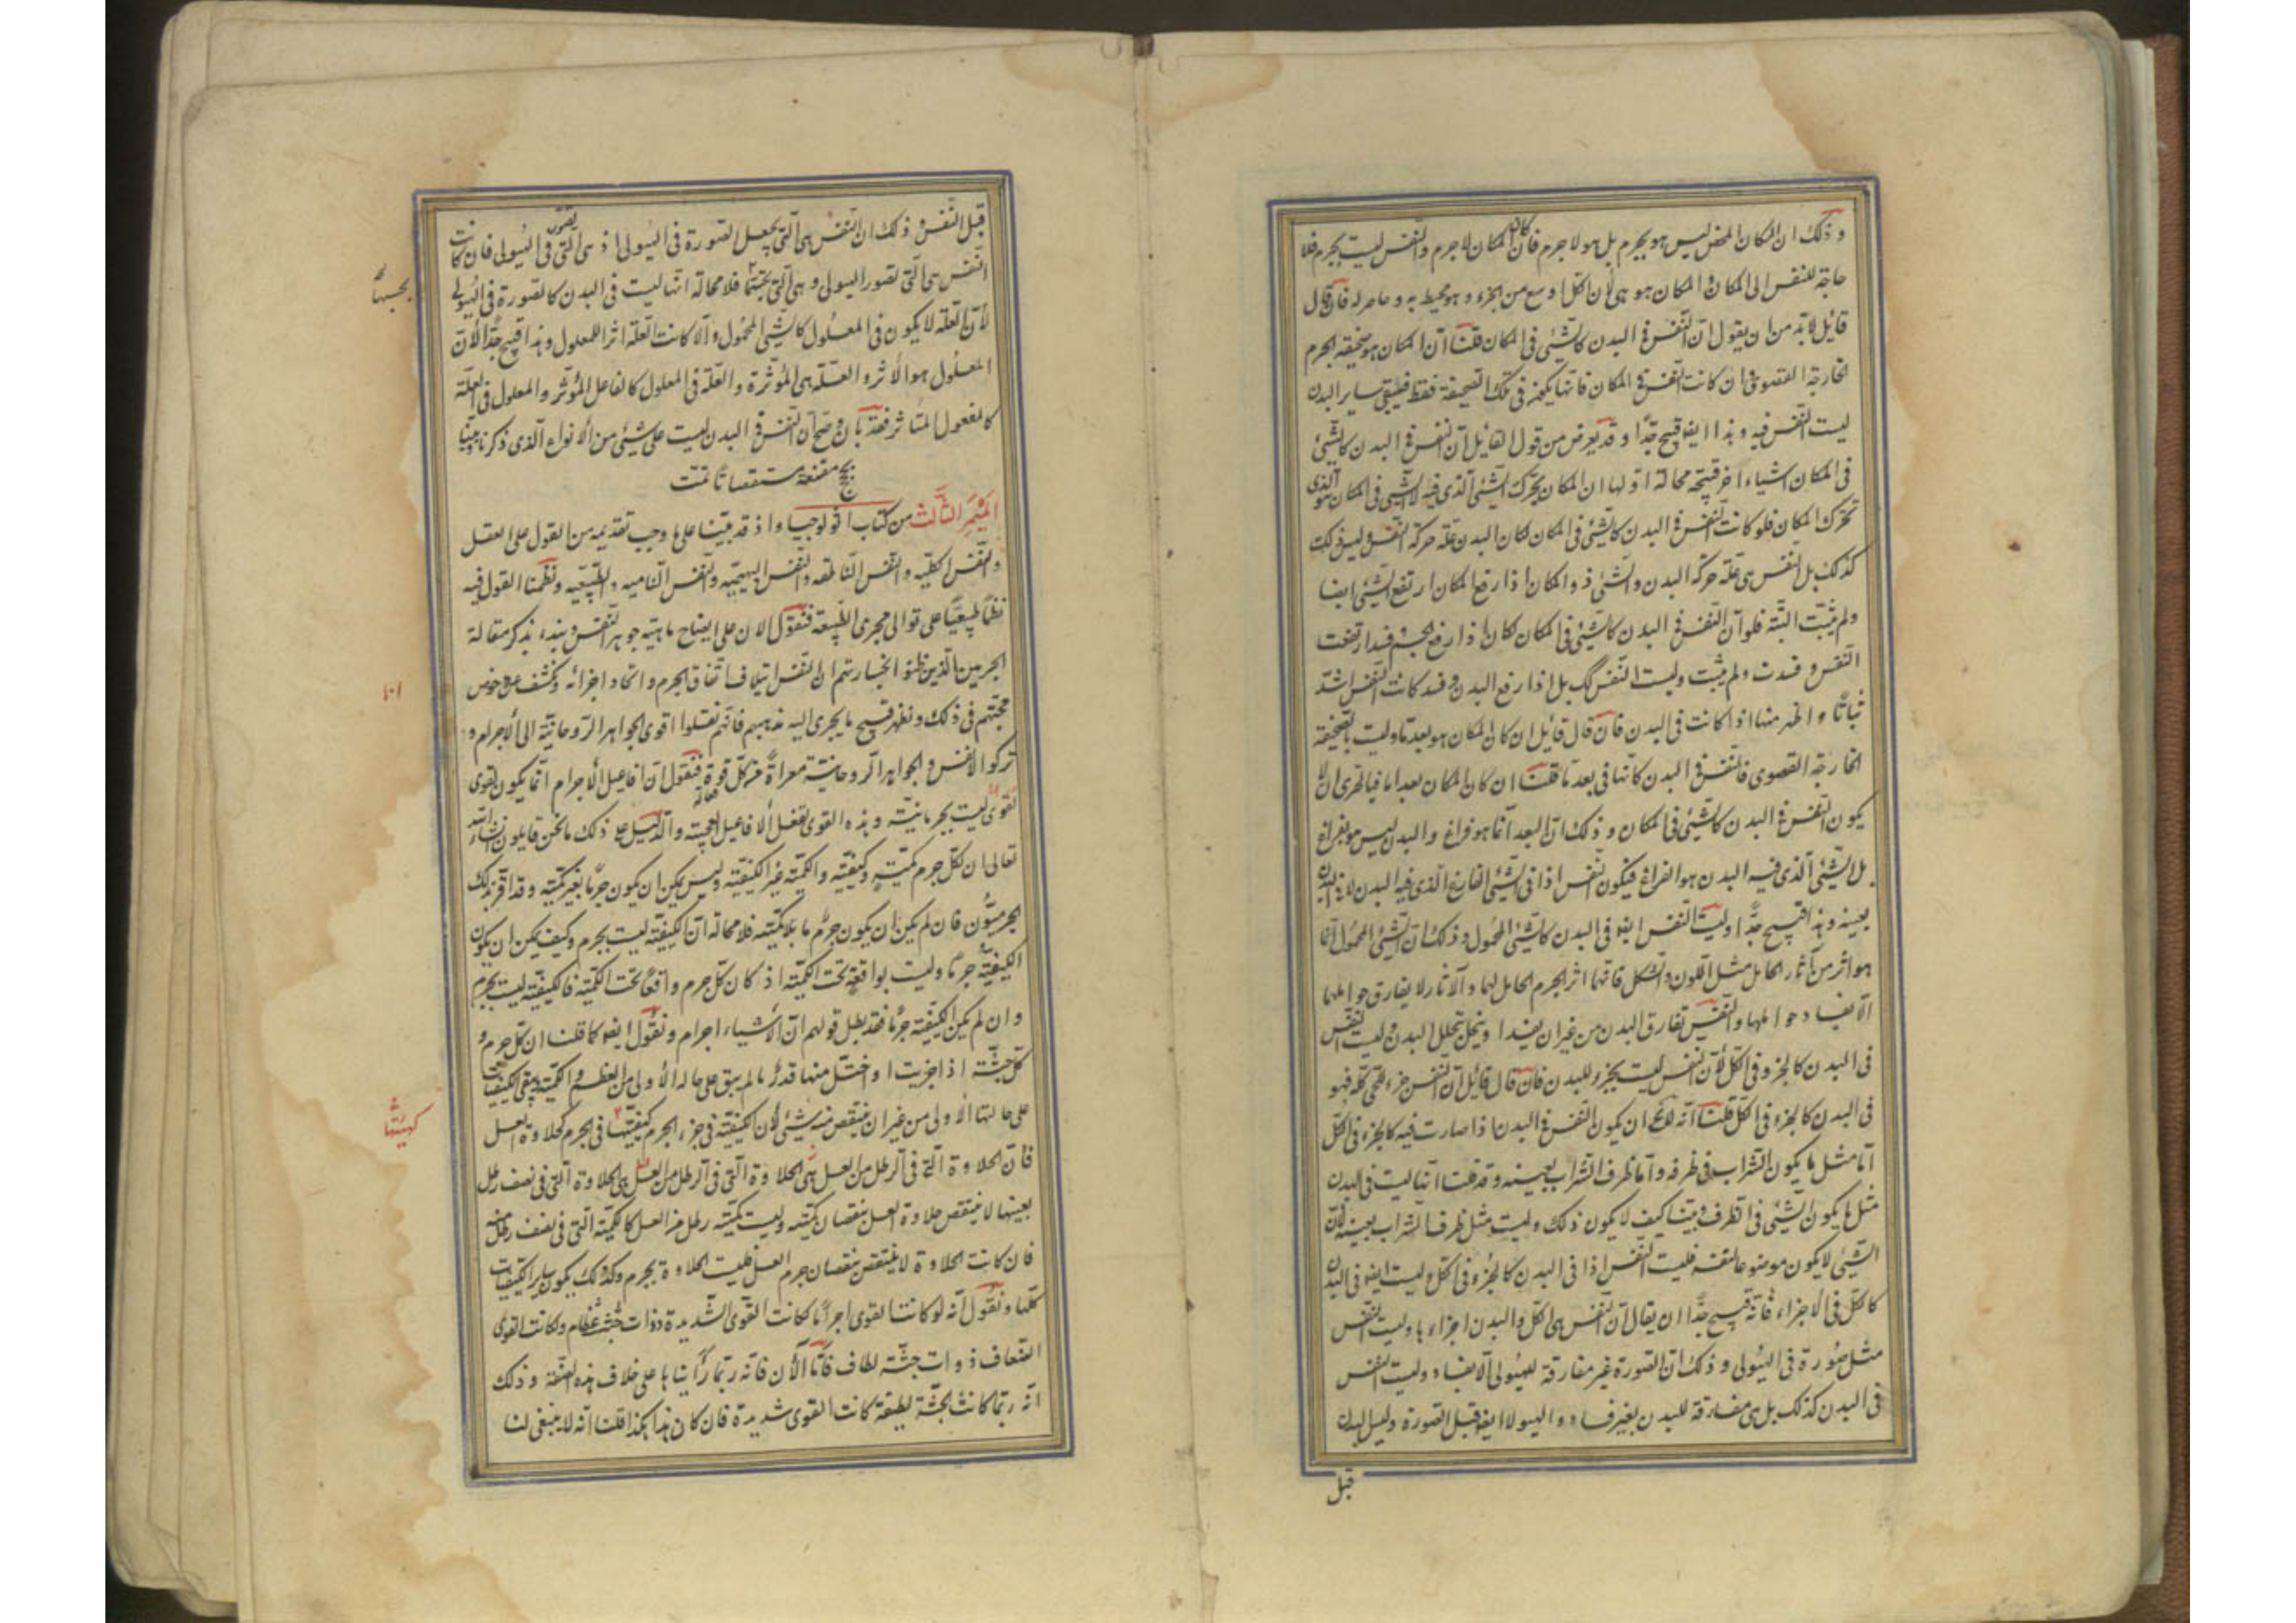 وذلك ان المكان المحض ليس هو بجرم بل هو لا جرم فان كان المكان لا جرم والنفس ليست بجرم فلا
حاجة للنفس الى المكان والمكان هو هى لأن الكل اوسع من الجزء وهو محيط به وحاصر له فان قال
قائل لا بد من ان يقول ان النفس فى البدن كالشئ فى المكان قلنا ان المكان هو صحيفة الجرم
الخارجة القصوى فان كانت النفس فى المكان فانها يكون فى تلك الصحيفة فقط فيبقى ساير البدن
ليست النفس فيه وهذا ايضا قبيح جدا وقد يعرض من قول القائل ان النفس فى البدن كالشئ
فى المكان اشياء اخر قبيحة محالة اولها ان المكان يحرك الشئ الذى فيه لا الشئ فى المكان هو الذى
تحرك المكان فلو كانت النفس فى البدن كالشئ فى المكان لكان البدن علة حركة النفس وليس ذلك
كذلك بل النفس هى علة حركة البدن والشئ ذو المكان اذا رفع المكان ارتفع الشئ ايضا
ولم يثبت البتة فلو ان النفس فى البدن كالشئ فى المكان لكان اذا رفع الجسم فسد ارتفعت
النفس وفسدت ولم يثبت وليست النفس كك بل اذا رفع البدن وفسد كانت النفس اشد
ثباتا واظهر منها اذا كانت فى البدن فان قال قائل ان كان المكان هو بعد ما وليست بالصحيفة
الخارجة القصوى فالنفس فى البدن كأنها فى بعد ما قلنا ان كان المكان بعدا ما فبالحرى ان لا
يكون النفس فى البدن كالشئ فى المكان وذلك ان البعد انما هو فراغ والبدن ليس هو بفراغ
بل الشئ الذى فيه البدن هو الفراغ فيكون النفس اذا فى الشئ الفارغ الذى فيه البدن لا فى البدن
بعينه وهذا قبيح جدا وليست النفس ايضا فى البدن كالشئ المحمول وذلك ان الشئ المحمول انما
هو اثر من آثار الحامل مثل اللون والشكل فانهما اثر الجرم الحامل لهما والآثار لا يفارق حواملها
الا بفساد حواملها والنفس تفارق البدن من غير ان يفسد او ينحل بتحلل البدن وليست النفس
فى البدن كالجزء فى الكل لأن النفس ليست بجزء للبدن فان قال قائل ان النفس جزء للحى كله فهو
فى البدن كالجزء فى الكل قلنا انه لا يخ ان يكون النفس فى البدن اذا صارت فيه كالجزء فى الكل
اما مثل ما يكون الشراب فى ظرفه واما ظرف الشراب بعينه وقد قلنا انها ليست فى البدن
مثل ما يكون الشئ فى الظرف وبينا كيف لا يكون ذلك وليست مثل ظرف الشراب بعينه لأن
الشئ لا يكون موضوعا لنفسه فليست النفس اذا فى البدن كالجزء فى الكل وليست ايضا فى البدن
كالكل فى الاجزاء فانه قبيح جدا ان يقال ان النفس هى الكل والبدن اجزاءها وليست النفس
مثل صورة فى الهيولى وذلك ان الصورة غير مفارقة للهيولى الا بفساد وليست النفس
فى البدن كذلك بل هى مفارقة للبدن بغير فساد والهيولا ايضا قبل الصورة وليس البدن
قبل
قبل النفس وذلك ان النفس هى التى يجعل الصورة فى الهيولى اذ هى التى تصور فى الهيولى فان كانت
النفس هى التى تصور الهيولى وهى التى تجسمها فلا محالة انها ليست فى البدن كالصورة فى الهيولى
لأن العلة لا يكون فى المعلول كالشئ المحمول والا كانت العلة اثرا للمعلول وهذا قبيح جدا لأن
المعلول هو الأثر والعلة هى المؤثرة والعلة فى المعلول كالفاعل المؤثر والمعلول فى العلة
كالمفعول المتأثر فقد بان وصح ان النفس فى البدن ليست على شئ من الأنواع الذى ذكرنا وبينا
بحجج مقنعة مستقصاة تمت
الميمر الثالث من كتاب اثولوجيا واذ قد بينا على ما وجب تقديمه من القول على العقل
والنفس الكلية والنفس الناطقة والنفس البهيمية والنفس النامية والطبيعية ونظمنا القول فيه
نظما طبيعيا على توالى مجرى الطبيعة فنقول الان على ايضاح ماهية جوهر النفس ونبدء بذكر مقالة
الجرميين الذين ظنوا بخسارتهم ان النفس ايتلاف اتفاق الجرم واتحاد اجزائه ونكشف عن دحوض
حجتهم فى ذلك ونظهر قبيح ما يجرى اليه مذهبهم فانهم نقلوا قوى الجواهر الروحانية الى الأجرام و
تركوا الانفس والجواهر الروحانية معراة من كل قوة فنقول ان افاعيل الأجرام انما يكون بقوى
لقوى ليست بجرمانية وهذه القوى تفعل الأفاعيل العجيبة والدليل على ذلك ما نحن قايلون ان شاء الله
تعالى ان لكل جرم كمية وكيفية والكمية غير الكيفية وليس يمكن ان يكون جرما بغير كمية وقد اقر بذلك
الجرميون فان لم يكن ان يكون جرم ما بلا كمية فلا محالة ان الكيفية ليست بجرم وكيف يمكن ان يكون
الكيفية جرما وليست بواقعة تحت الكمية اذ كان كل جرم واقعا تحت الكمية فالكيفية ليست بجرم
وان لم يكن الكيفية جرما فقد بطل قولهم ان الأشياء اجرام ونقول ايضا كما قلنا ان كل جرم و
كل جثة اذا جزيت او اختزل منها قدر ما لم يبق على حاله الأولى من العظم والكمية ويبقى الكيفيات
على حالتها الأولى من غير ان ينتقص منه شئ لأن الكيفية فى جزء الجرم كيفيتها فى الجرم كحلاوة العسل
فان الحلاوة التى فى الرطل من العسل هى الحلاوة التى فى الرطل من العسل هى الحلاوة التى فى نصف رطل
بعينها لا ينتقص حلاوة العسل بنقصان كميته وليست كمية رطل من العسل كالكمية التى فى نصف رطل منه
فان كانت الحلاوة لا ينتقص بنقصان جرم العسل فليست الحلاوة بجرم وكذلك يكون ساير الكيفيات
كلها ونقول انه لو كانت القوى اجراما لكانت القوى الشديدة ذوات جثث عظام ولكانت القوى
الضعاف ذوات جثة لطاف فاما الأن فانه ربما رأيناها على خلاف هذه الصفة وذلك
انه ربما كانت الجثة لطيفة كانت القوى شديدة فان كان هذا هكذا قلنا انه لا ينبغى لنا